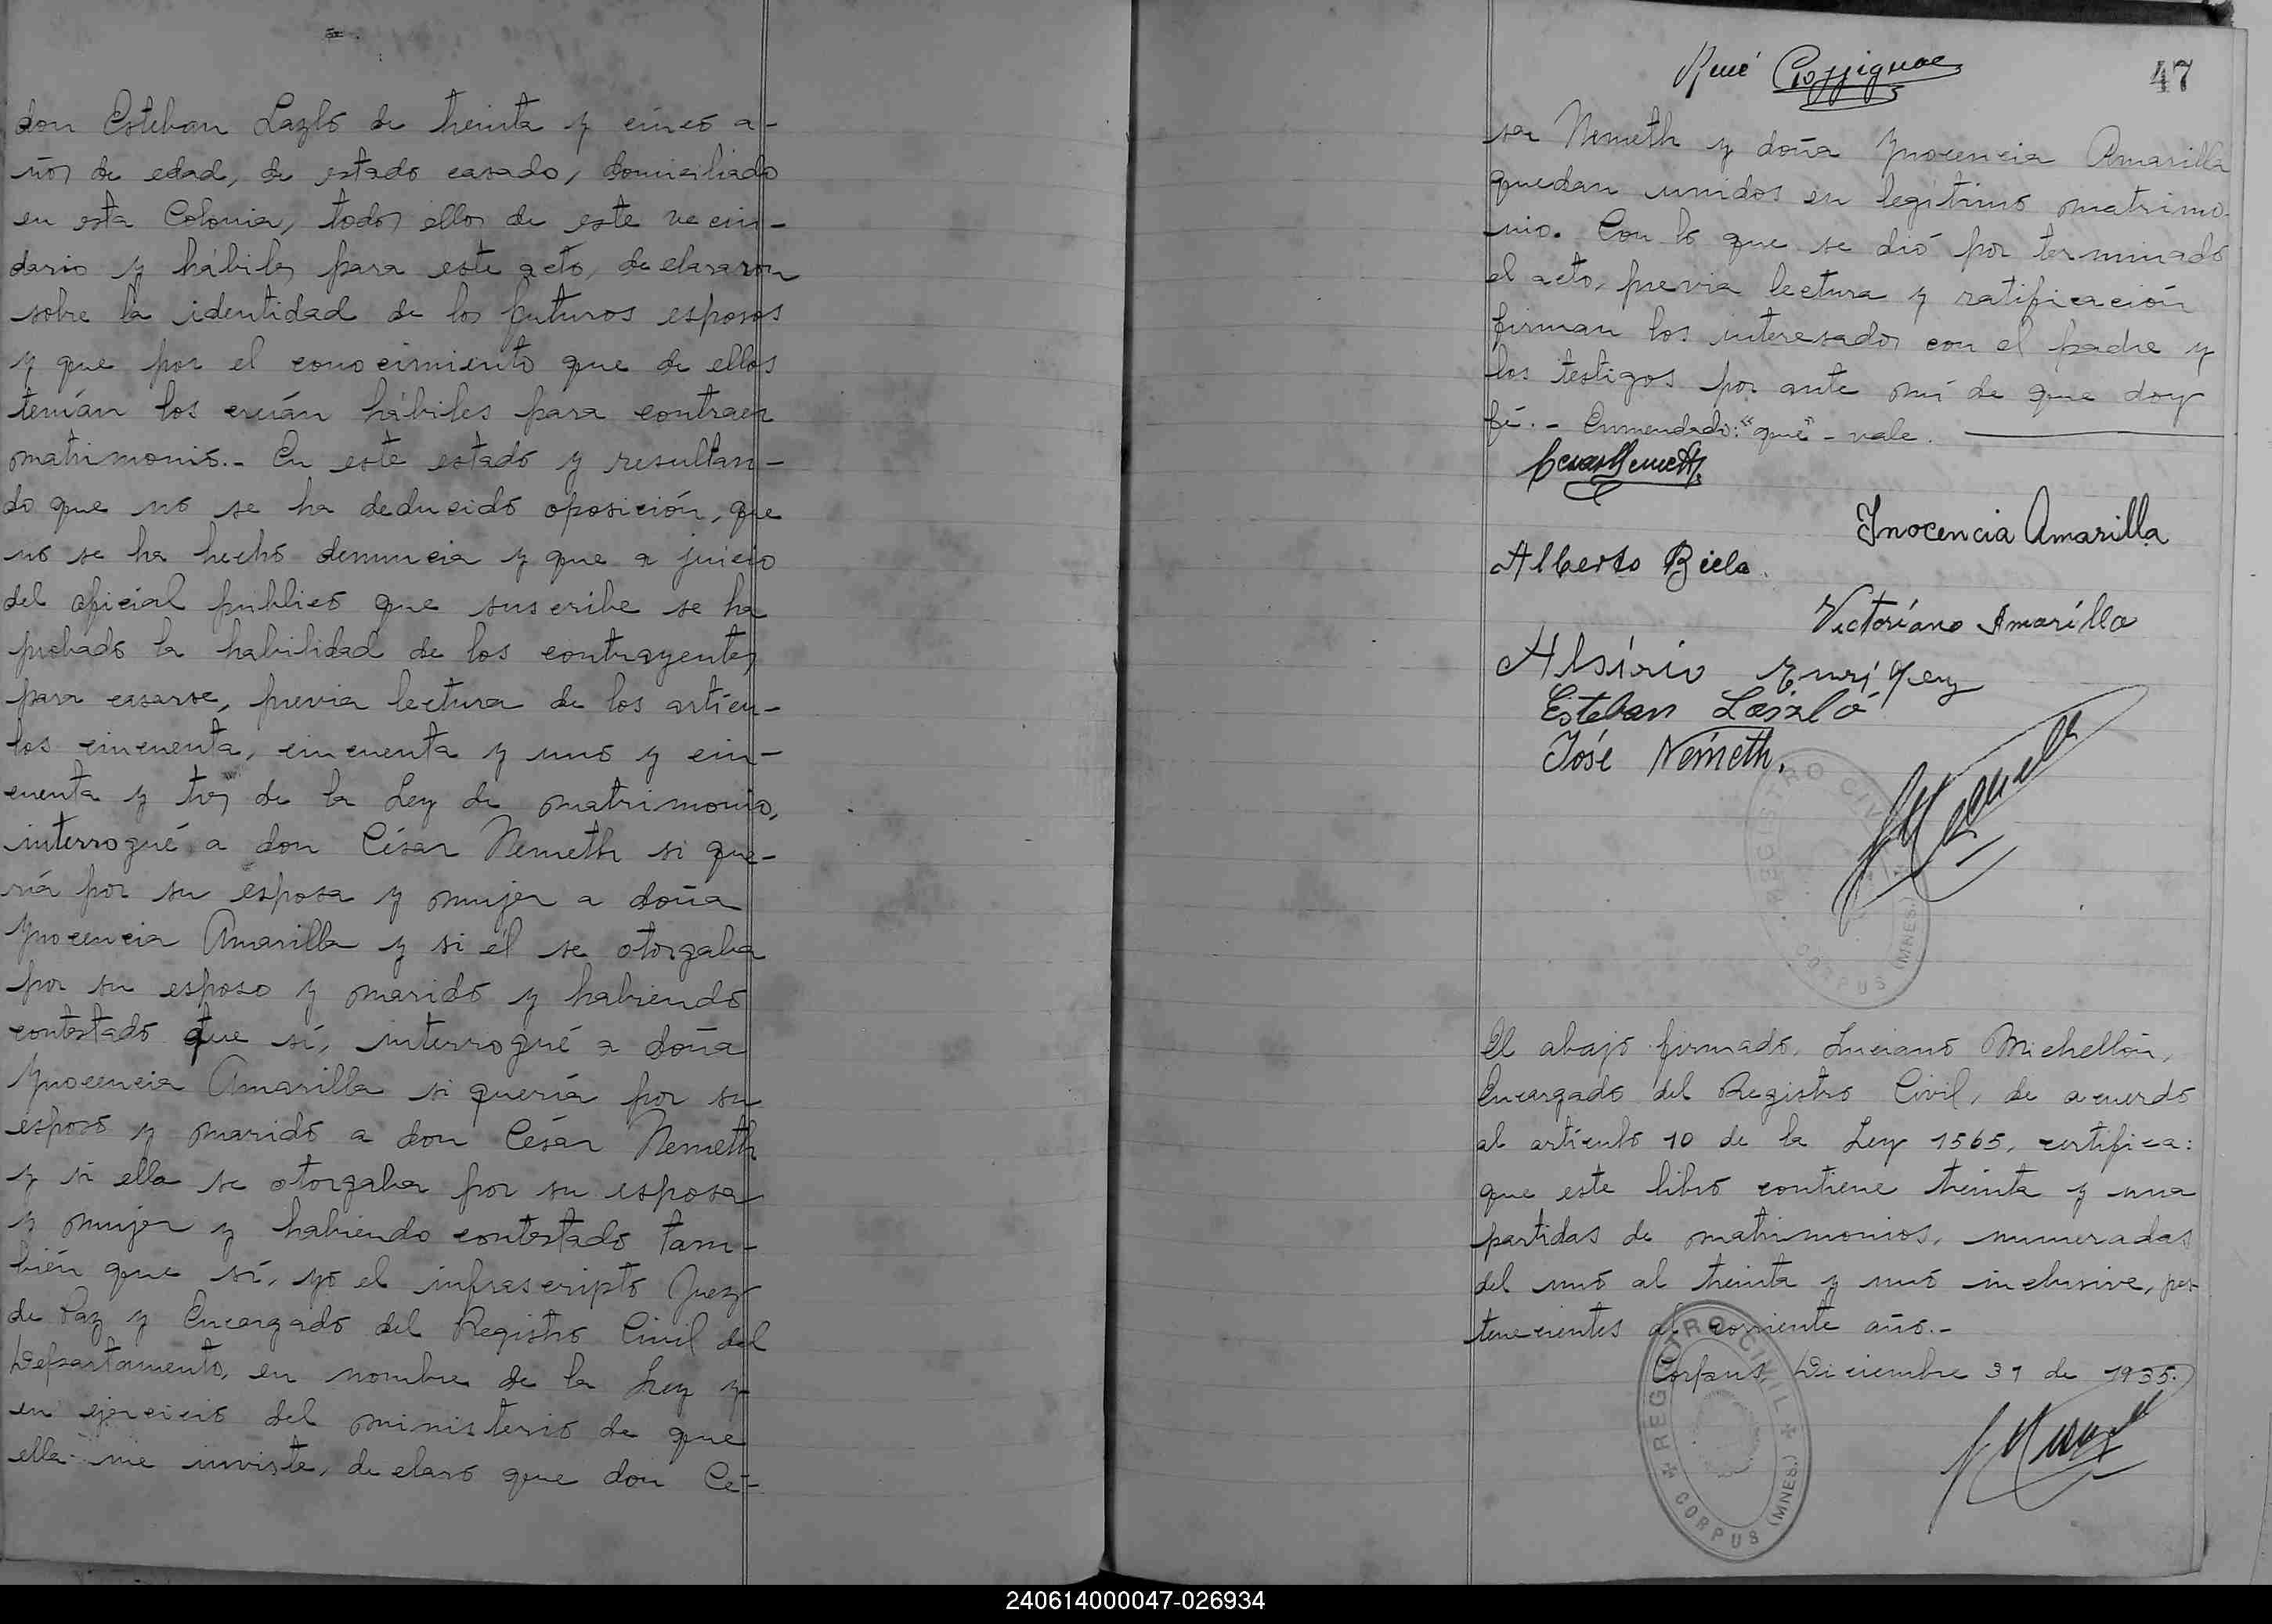 don Esteban Lazló de treinta y cinco a-
ños de edad, de estado casado, domiciliado
en esta Colonia, todos ellos de este vecin-
dario y hábiles para este acto, declararon
sobre la identidad de los futuros esposos
y que por el conocimiento que de ellos
tenían los creían hábiles para contraer
matrimonio.- En este estado y resultan-
do que no se ha deducido oposición, que
no se ha hecho denuncia y que a juicio
del oficial público que suscribe se ha
probado la habilidad de los contrayentes
para casarse, previa lectura de los artícu-
los cincuenta, cincuenta y uno y cin-
cuenta y tres de la Ley de matrimonio,
interrogué a don César Nemeth si que-
ría por su esposa y mujer a doña
Ynocencia Amarilla y si él se otorgaba
por su esposo y marido y habiendo
contestado que sí, interrogué a doña
Ynocencia Amarilla si quería por su
esposo y marido a don César Nemeth
y si ella se otorgaba por su esposa
y mujer y habiendo contestado tam-
bién que sí, yo el infrascripto Juez
de Paz y Encargado del Registro Civil del
Departamento, en nombre de la Ley y
en ejercicio del ministerio de que
ella me inviste, declaro que don Cé-
René
47
sar Nemeth y doña Ynocencia Amarilla
quedan unidos en legítimo matrimo-
nio. Con lo que se dió por terminado
el acto, previa lectura y ratificación
firman los interesados con el padre y
los testigos por ante mí de que doy
fé.- Enmendado: "que" - vale.
Cesar Nemeth
Inocencia Amarilla
Alberto Biela.
Victoriano Amarilla
Alsírio Enriquez
Esteban László
José Németh.
REGISTRO CIVIL
CORPUS (MNES.)
El abajo firmado, Luciano Michellón,
Encargado del Registro Civil, de acuerdo
al artículo 10 de la Ley 1565, certifica:
que este libro contiene treinta y una
partidas de matrimonios, numeradas
del uno al treinta y uno inclusive, per-
tenecientes al corriente año.-
Corpus, Diciembre 31 de 1935.
REGISTRO CIVIL
CORPUS (MNES.)
240614000047-026934